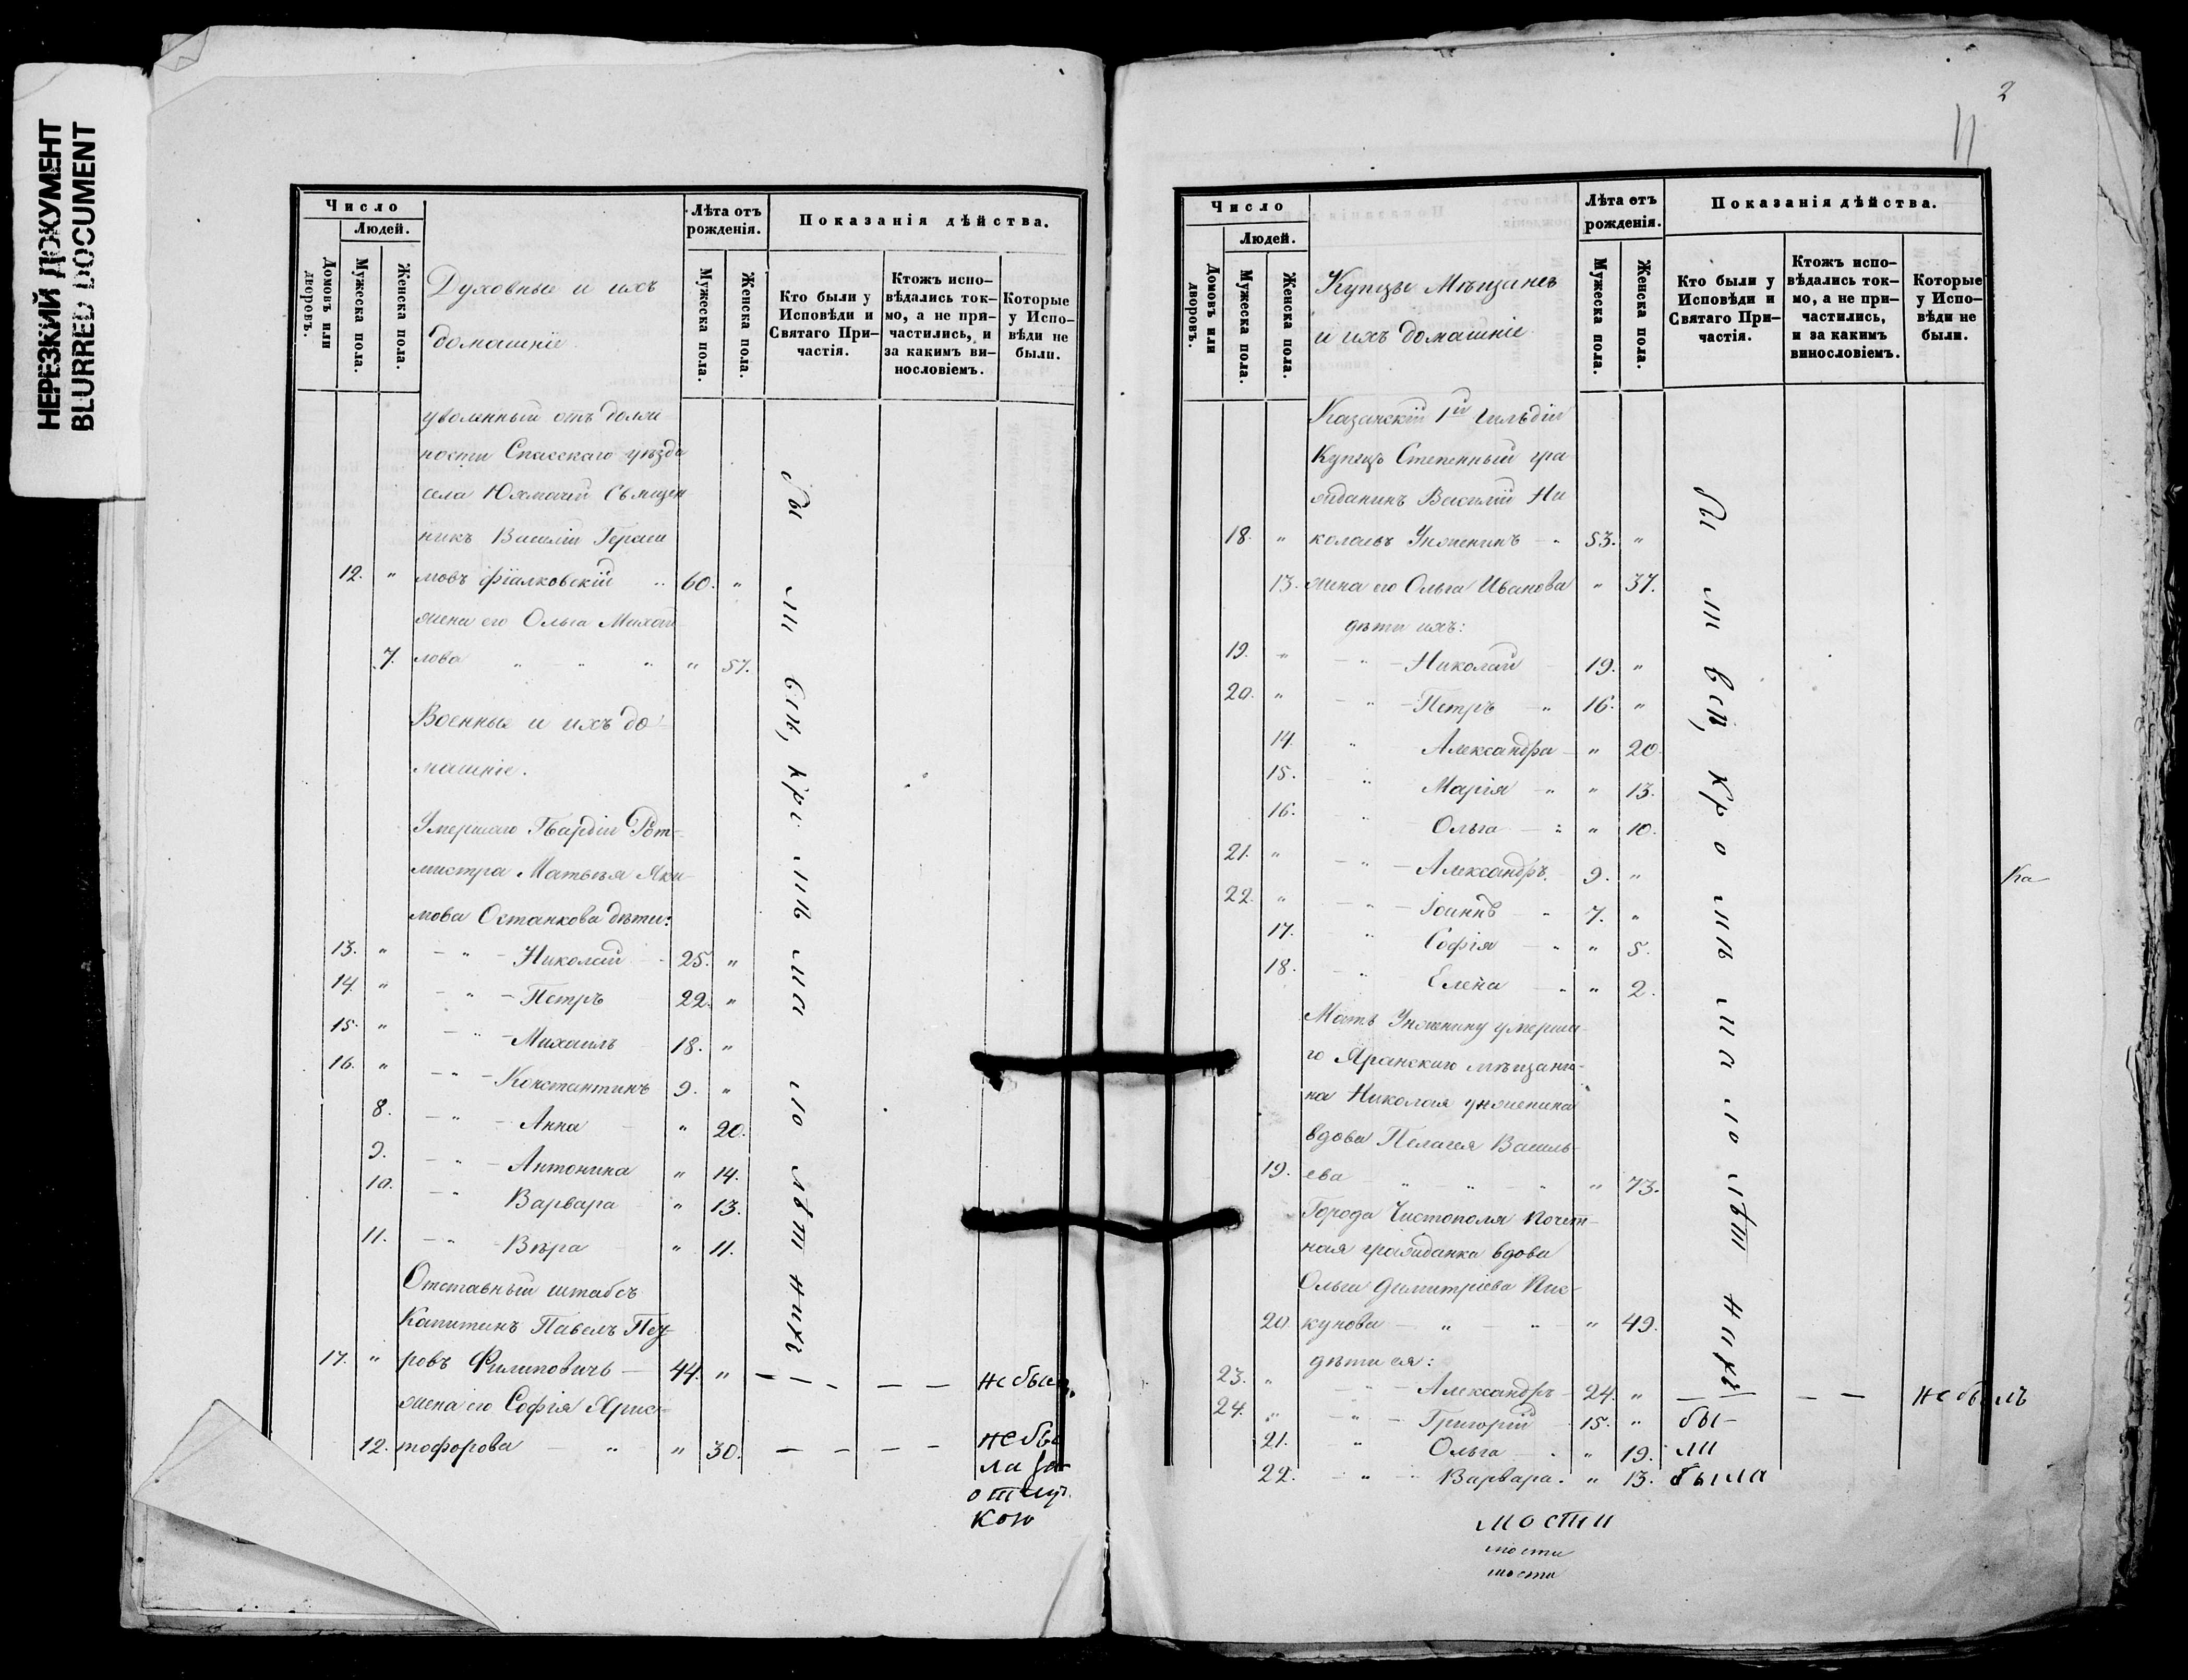 НЕРЕЗКИЙ ДОКУМЕНТ
BLURRED DOCUMENT
Число
Людей.
Домовъ или дворовъ.
Мужеска пола.
Женска пола.
Духовные и ихъ
домашніе
Лѣта отъ рожденія.
Мужеска пола.
Женска пола.
Показанія дѣйства.
Кто были у Исповѣди и Святаго При-частія.
Ктожъ испо-вѣдались ток-мо, а не при-частились, и за какимъ ви-нословіемъ.
Которые у Испо-вѣди не были.
уволенный отъ долж
ности Спасскаго уѣзда
села Юхмачи Священ
никъ Василій Гераси
12. " мовъ Фіалковскій " 60. "
жена его Ольга Михай
7. лова " " " 57.
Военные и ихъ до-
машніе.
Умершаго Гвардіи Рот-
мистра Матвѣя Яки-
мова Останкова дѣти:
13. " - " - Николай - 25. "
14. " - " - Петръ 22. "
15. " - " - Михаилъ 18. "
16. " - " - Константинъ 9. "
8. - " - Анна - " 20.
9. - " - Антонина " 14.
10. - " Варвара " 13.
11. - " - Вѣра " 11.
Отставный штабсъ
Капитанъ Павелъ Пет-
17. " ровъ Филиповичъ - 44. " - - - - - не былъ
жена его Софія Хрис-
12. тофорова - " " 30. - - - - не бы
ла за
отлуч
кою
Бы ли всѣ, кро мѣ ма ло лѣт нихъ
2
11
Число
Людей.
Домовъ или дворовъ.
Мужеска пола.
Женска пола.
Купцы Мѣщане
и ихъ домашніе
Лѣта отъ рожденія.
Мужеска пола.
Женска пола.
Показанія дѣйства.
Кто были у Исповѣди и Святаго При-частія.
Ктожъ испо-вѣдались ток-мо, а не при-частились, и за какимъ винословіемъ.
Которые у Испо-вѣди не были.
Казанскій 1й Гильдіи
Купецъ Степенный гра
жданинъ Василій Ни
18. " колаевъ Унженинъ - " 53. "
13. жена его Ольга Иванова " 37.
дѣти ихъ:
19. " - " - Николай 19. "
20. " - " - Петръ - " 16. "
14. " Александра - " 20
15. - " Марія - " " 13.
16. " Ольга - " " 10.
21. " - " - Александръ. 9. "
22. " - " - Іоаннъ - " 7. "
17. - " Софія - " " 5.
18. - " Елена - " " 2.
Мать Унженину умерша-
го Яранскаго мѣщани-
на Николая Унженина
вдова Пелагея Василь-
19. ева - " - " - " " 73.
Города Чистополя Почет-
ная гражданка вдова
Ольга Димитріева Пис-
20 кунова - " - " - " 49.
дѣти ея:
23. " - " - Александръ - 24. " - - - - не былъ
24. " - " - Григорій - 15. " бы-
21. " Ольга - " " 19. ли
22. - " - Варвара. " 13. была
Бы ли всѣ, кр о мѣ ма ло лѣт нихъ
Ка
мости
мости
мости